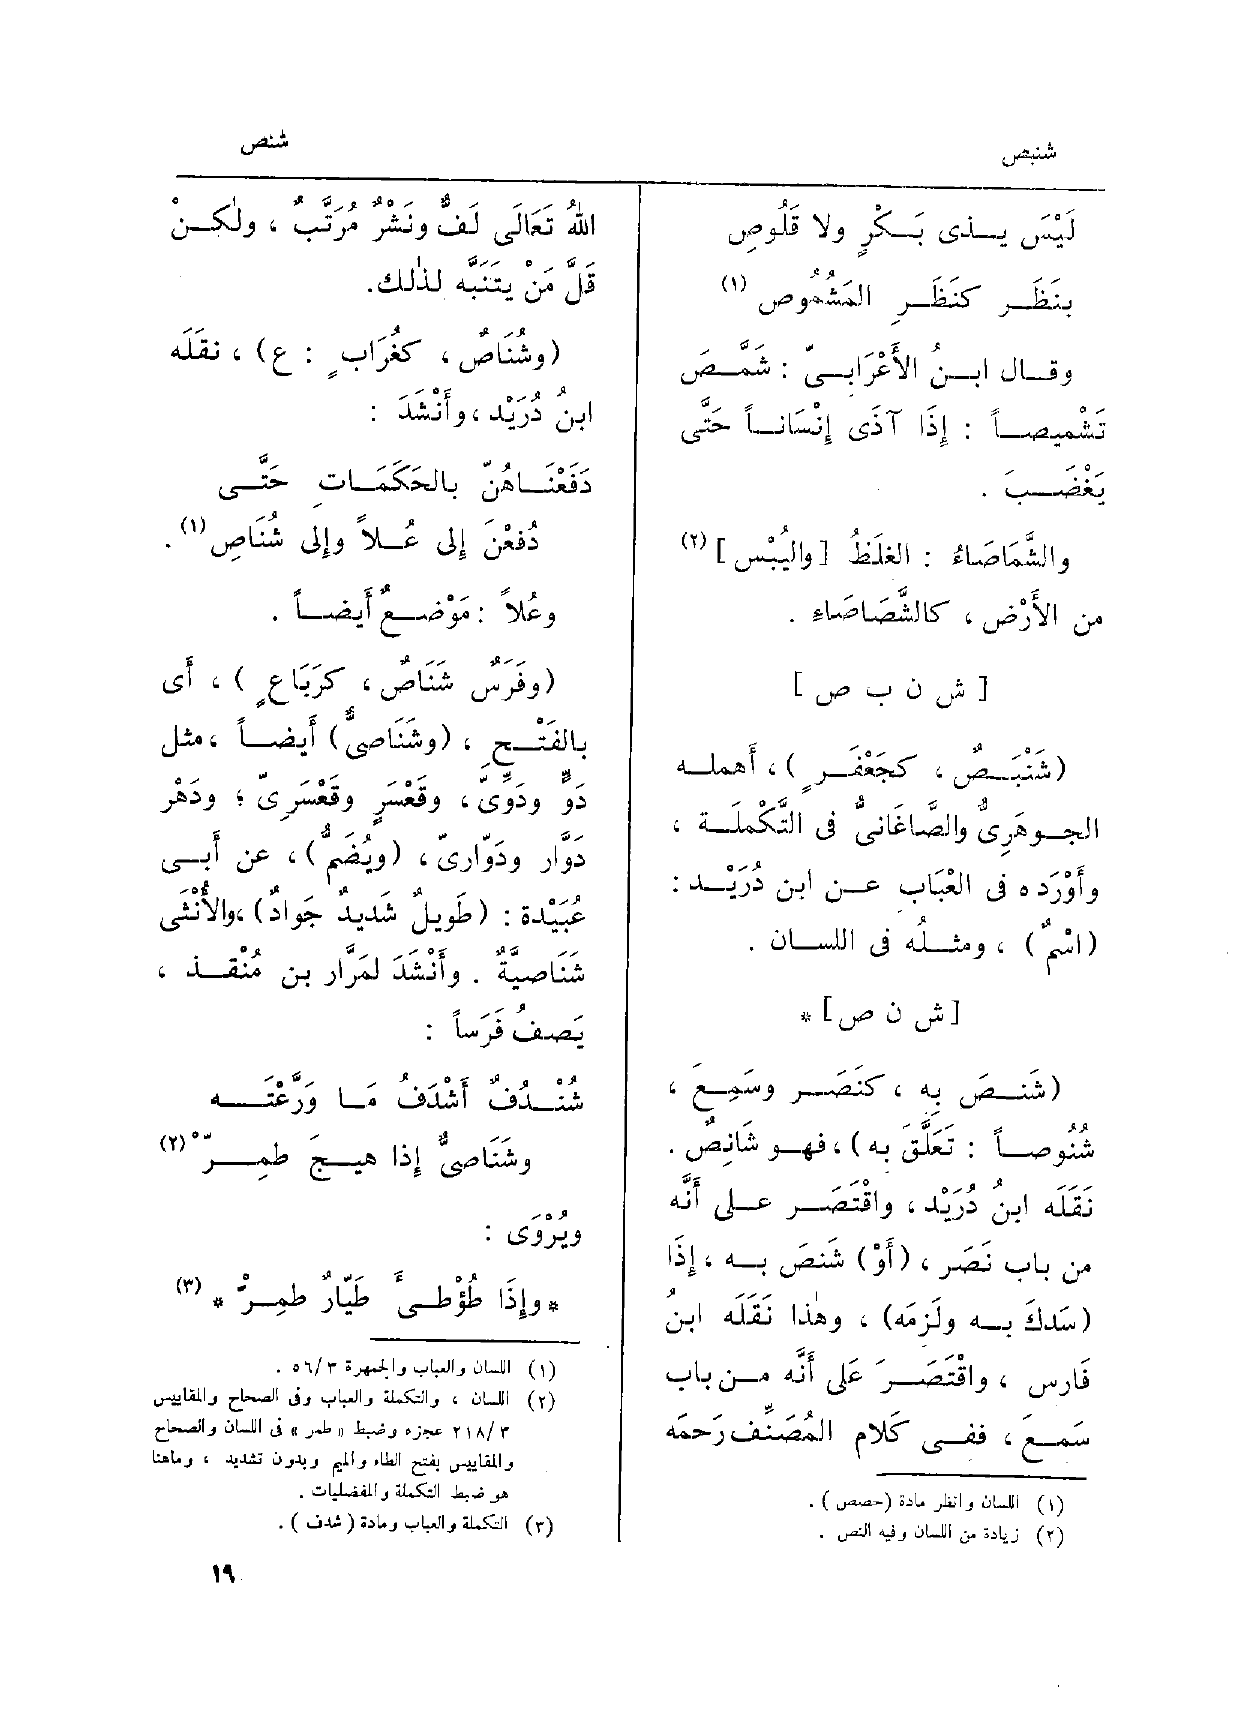 شنبص
شنص
لَيْسَ بِذى بَكْرٍ ولا قَلُوصِ
بنَظَرٍ كنَظَرِ المَشْمُوصِ (١)
وقال ابنُ الأَعْرَابىّ : شَمَّصَ
تَشْمِيصاً : إِذَا آذَى إِنْسَاناً حَتَّى
يَغْضَبَ .
والشَّمَاصَاءُ : الغلَظُ [واليُبْس] (٢)
من الأَرْضِ ، كالشَّصَاصَاءِ .
[ ش ن ب ص ]
(شَنْبَصٌ ، كجَعْفَرٍ) ، أَهمله
الجوهَرِىُّ والصَّاغَانىُّ فى التَّكْمِلَة ،
وأَوْرَدَه فى العُبَاب عن ابن دُرَيْد :
(اسْمٌ) ، ومثلُه فى اللسان .
[ش ن ص] *
(شَنَصَ بِه ، كنَصَر وسَمِعَ ،
شُنُوصاً : تَعَلَّق به) ، فهو شَانِصٌ .
نَقَلَه ابنُ دُرَيْد ، واقْتَصَر على أَنَّه
من باب نَصَر ، (أَوْ) شَنصَ به ، إِذَا
(سَدكَ به ولَزِمَه) ، وهٰذا نَقَلَه ابنُ
فَارس ، واقْتَصَرَ عَلَى أَنَّه من باب
سَمِعَ ، ففى كَلام المُصَنِّف رَحمَه
(١) اللسان وانظر مادة (حصص) .
(٢) زيادة من اللسان وفيه النص .
اللهُ تَعَالَى لَفٌّ ونَشْرٌ مُرَتَّبٌ ، ولٰكنْ
قَلَّ مَنْ يتَنَبَّه لذٰلك .
(وشُنَاصٌ ، كغُرَابٍ : ع) ، نقَلَه
ابنُ دُرَيْد ، وأَنْشَدَ :
دَفَعْنَاهُنّ بالحَكَمَاتِ حَتَّى
دُفعْنَ إِلى عُلاً وإِلى شُنَاصِ (١) .
وعُلاً : مَوْضعٌ أَيضاً .
(وفَرَسٌ شَنَاصٌ ، كَرَبَاعٍ) ، أَى
بالفَتْحِ ، (وشَنَاصىٌّ) أَيضاً ، مثل
دَوٍّ ودَوِّىّ ، وقَعْسَرٍ وقَعْسَرِىّ ؛ ودَهْرٍ
دَوَّار ودَوَّارىّ ، (ويُضَمُّ) ، عن أَبى
عُبَيْدة : (طَويلٌ شَديدٌ جَوادٌ) ، والأُنْثَى
شَنَاصيَّةٌ . وأَنْشَدَ لمَرَّار بن مُنْقذ ،
يَصفُ فَرَساً :
شُنْدُفٌ أَشْدَفُ مَا وَرَّعْتَه
وشَنَاصىٌّ إِذا هيجَ طمِرّْ (٢)
ويُرْوَى :
* وإِذَا طُؤْطىَّ طَيَّارٌ طمِرّْ * (٣)
(١) اللسان والعباب والجمهرة ٣/٥٦ .
(٢) اللسان ، والتكملة والعباب وفى الصحاح والمقاييس
٣/٢١٨ عجزه وضبط «طمر» فى اللسان والصحاح
والمقاييس بفتح الطاء والميم وبدون تشديد ، وماهنا
هو ضبط التكملة والمفضليات .
(٣) التكملة والعباب ومادة (شدف) .
١٩